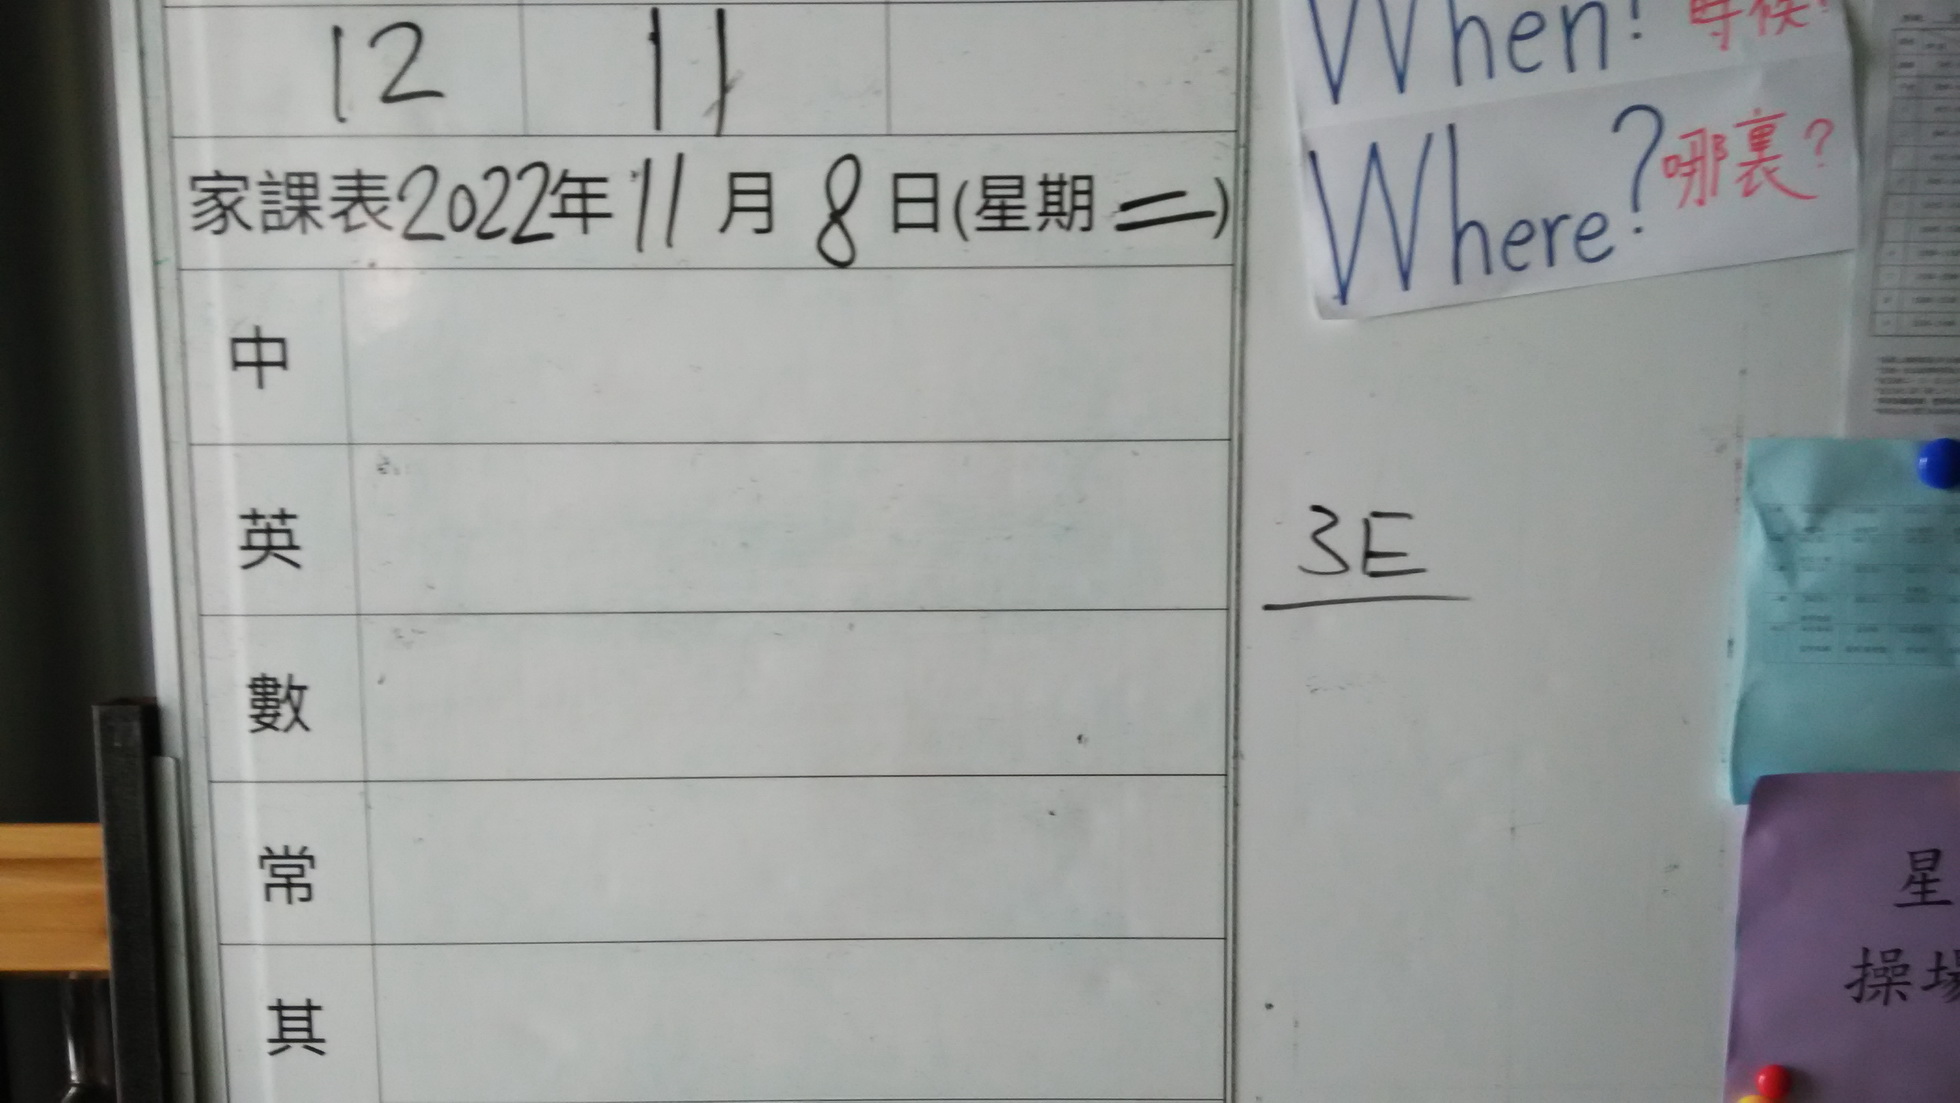 12 11
When? 時候?
家課表2022年11月8日(星期二)
Where? 哪裏?
中
英
3E
數
常
星
操場
其